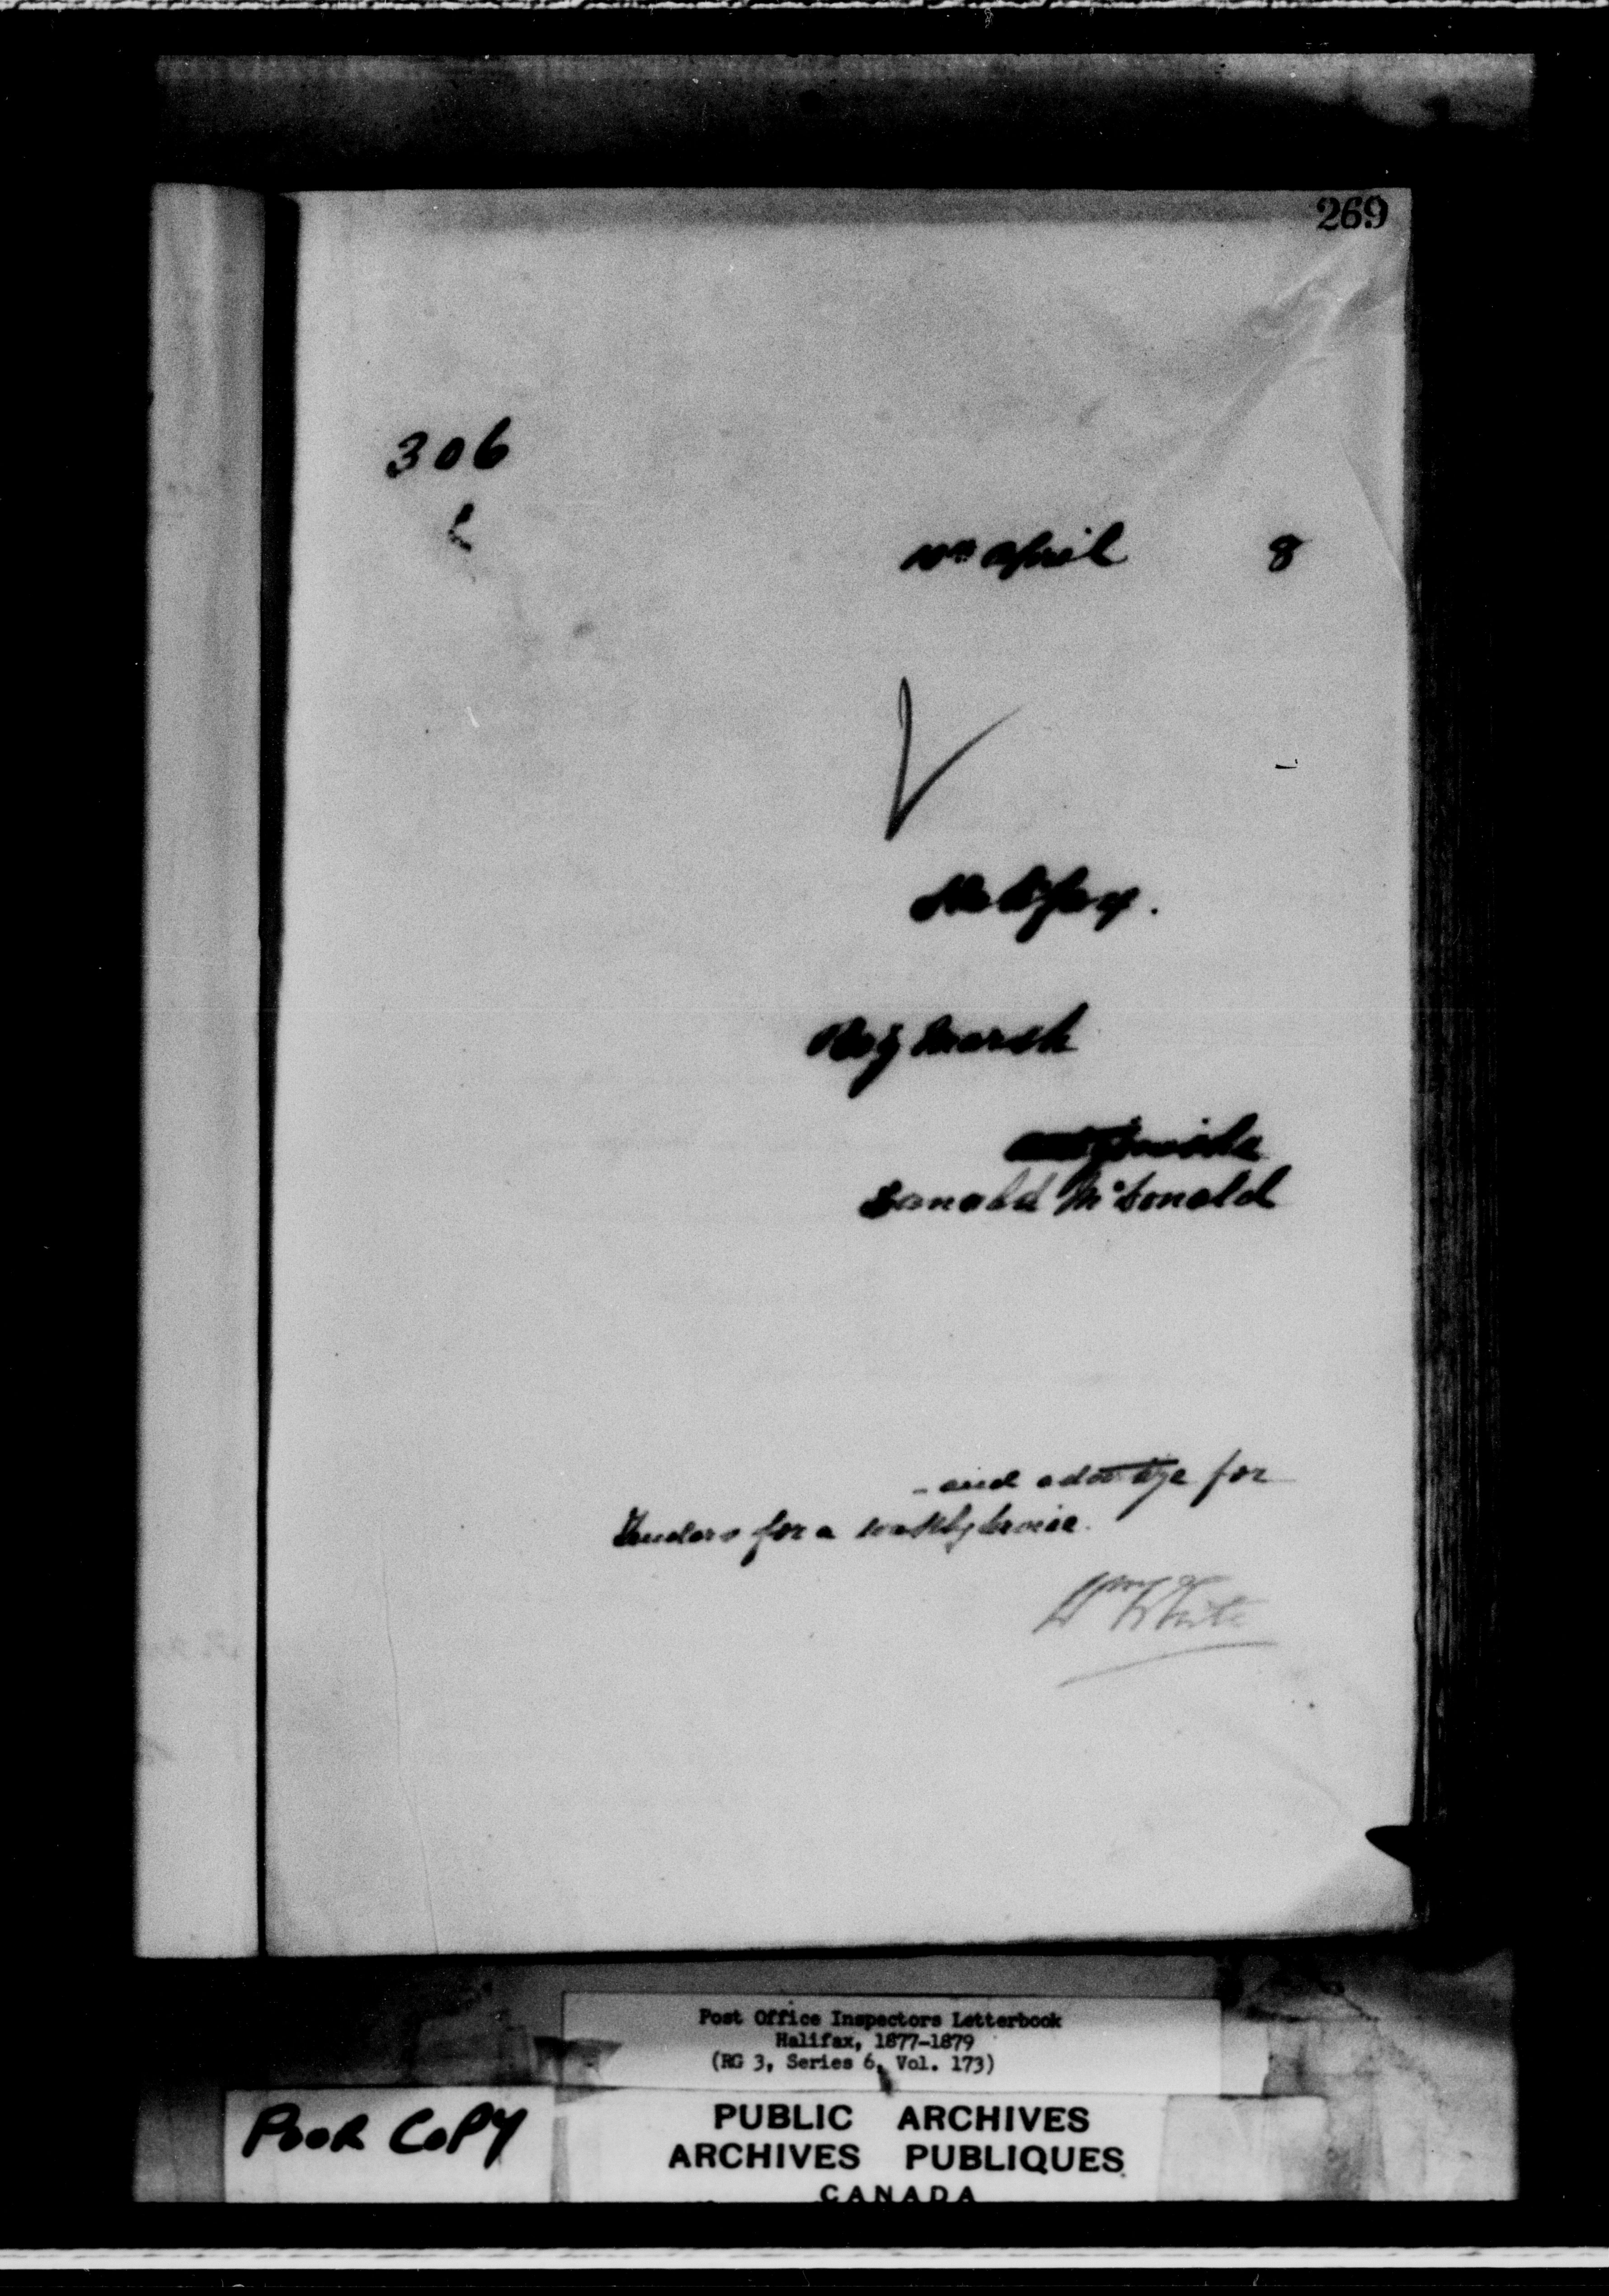 269
306
10th April 8
Halifax.
Bog Marsh
Donald McDonald
- and advertize for
Tenders for a weekly service.
Wm White
Post Office Inspectors Letterbook
Halifax, 1877-1879
(RG 3, Series 6, Vol. 173)
POOR COPY
PUBLIC ARCHIVES
ARCHIVES PUBLIQUES
CANADA